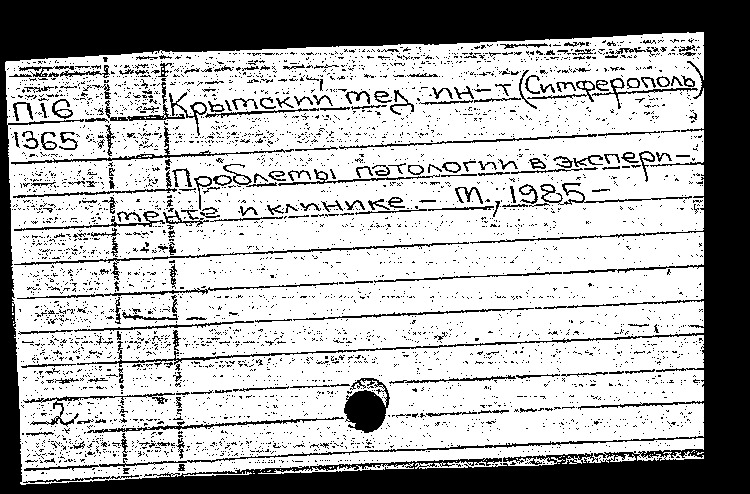 П16 Крымский мед. ин-т (Симферополь)
1365
Проблемы патологии в экспери-
менте и клинике. - М., 1985 -
2